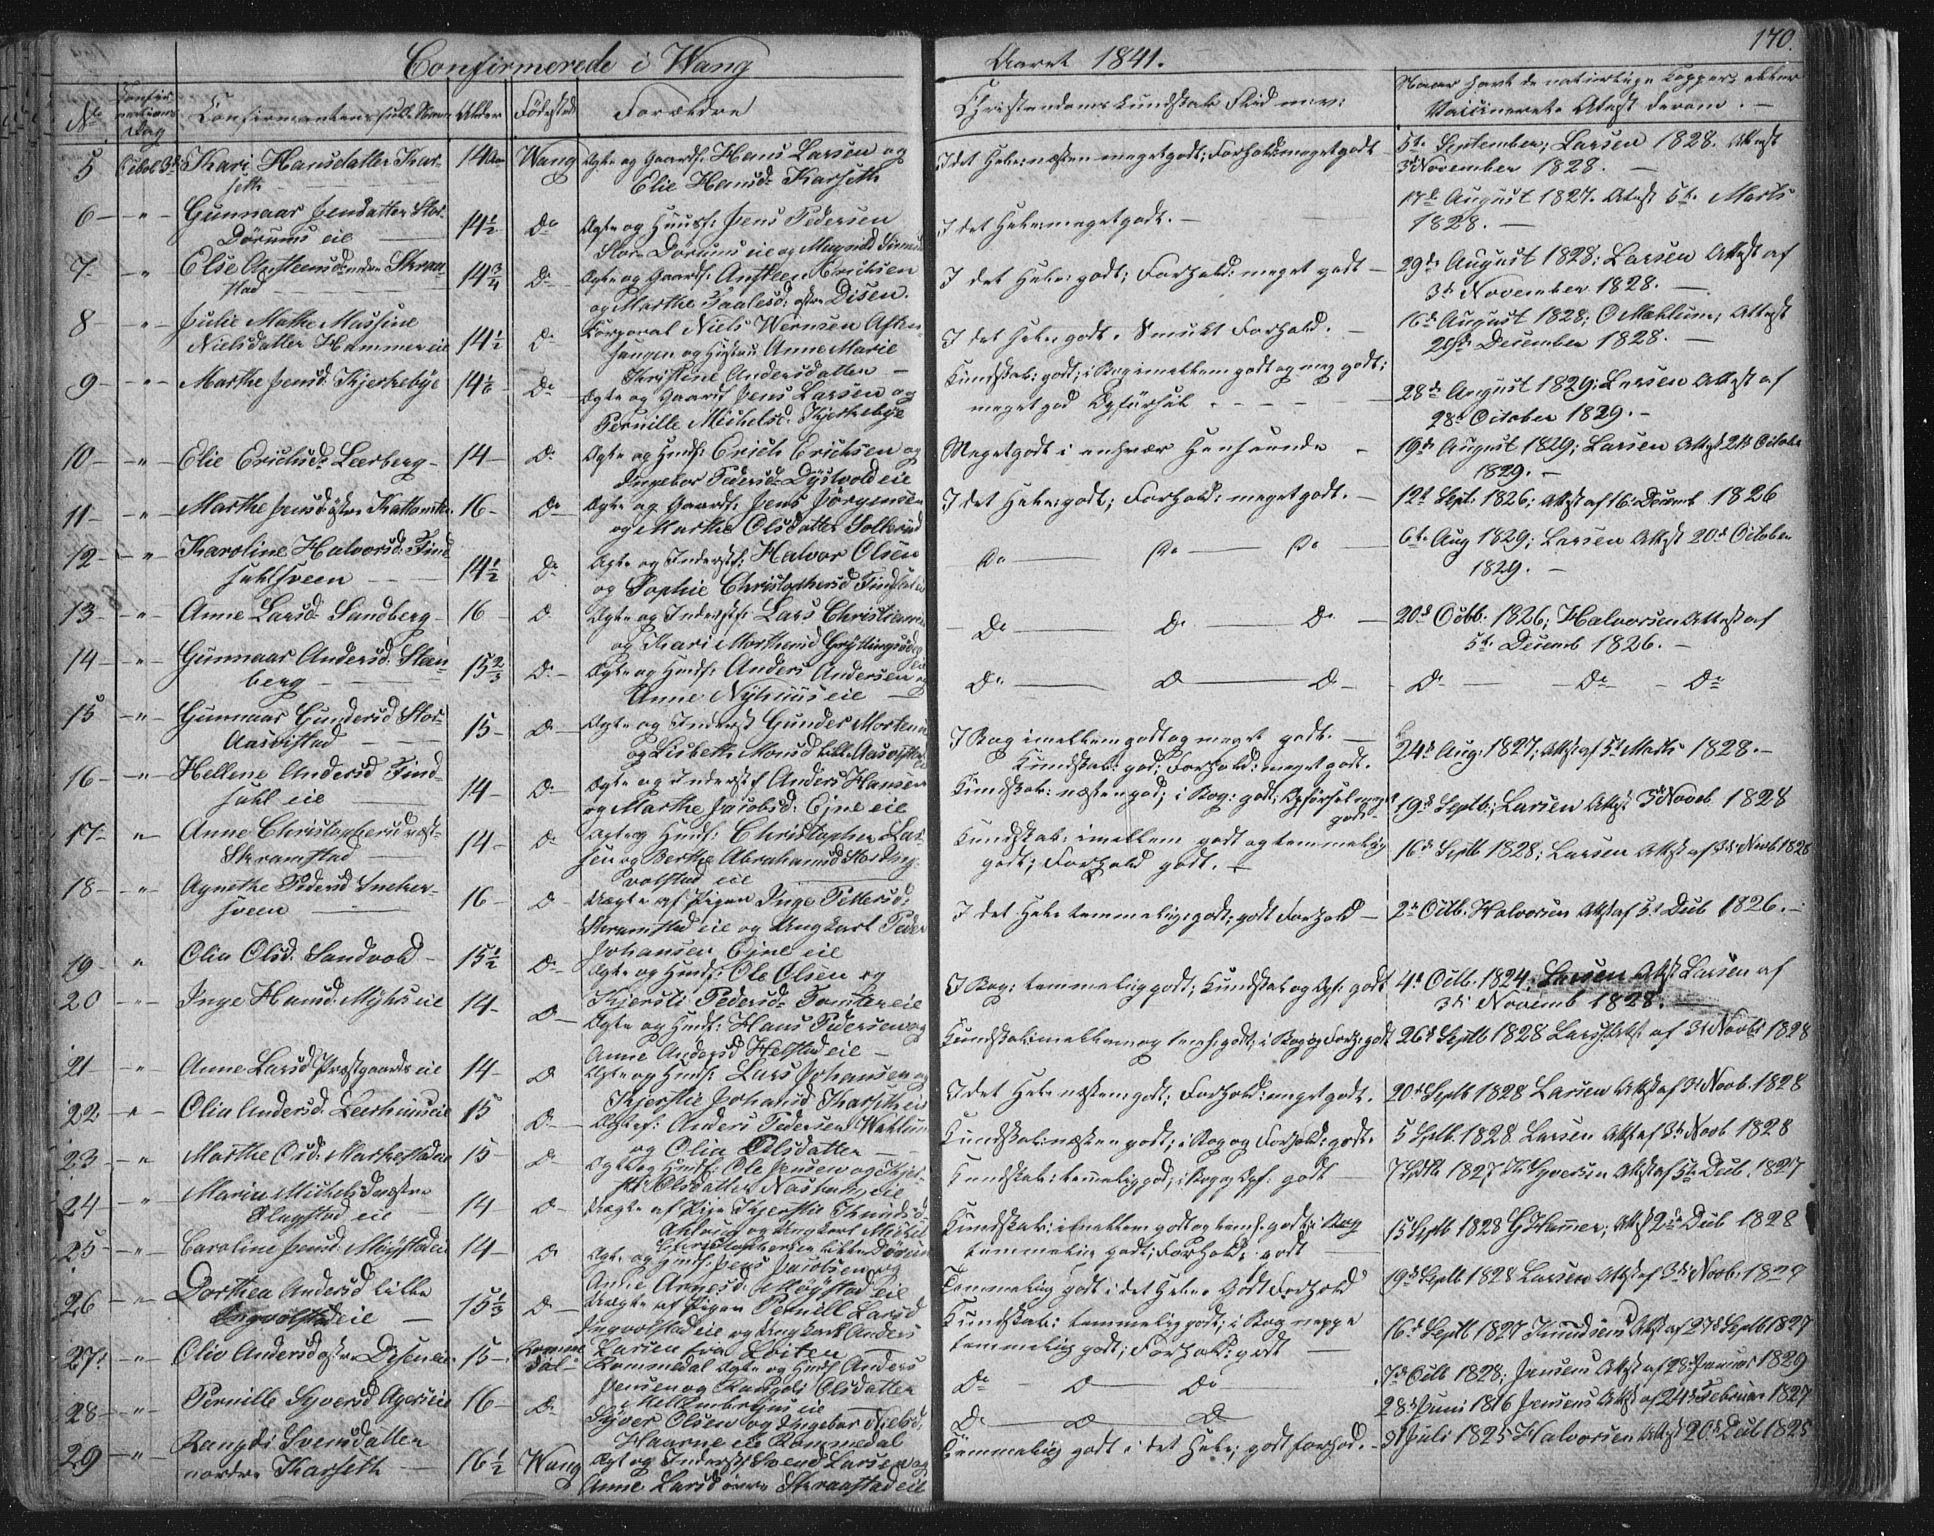 Confirmerede i Wang
Aaret 1841.
170.
No
Confirmations Dag
Confirmantens fulde Navn
Alder
Fødested
Forældre
Christendoms kundskab Flid m:v:
Naar havt de naturlige Copper eller
Vaccineret Attest derom. —
5 Octob 3de Kari Hansdatter Kar-
seth
14 Wang Ægte og Gaardf: Hans Larsen og
Elie Hansd: Karseth
I det Hele: næsten megetgodt; Forhold: megetgodt
5te September; Larsen 1828. Attest
3de November 1828. —
6 — " — Gunnaar Jensdatter Stor-
Dørums eie
14 1/2 Do Ægte og Huusf: Jens Pedersen
Stor Dørums eie og Magnild
I det Hele: megetgodt. —
17de August 1827. Attest 5te Marts
1828. —
7 — " Else Anstensd: nedre Skraa-
stad
14 3/4 Do Ægte og Gaardf: Ansten Erichsen
og Marthe Paalesd: østre Disen.
I det Hele: godt; Forhold: meget godt —
29de August 1828; Larsen Attest af
3de November 1828. —
8 — " — Julie Mathe Massine
Nielsdatter Hammer eie
14 1/2 Do Corporal Niels Wernsen Aften-
haugen og Hustru Anne Marie
Christine Andersdatter —
I det Hele: godt. Smukt Forhold. —
16de August 1828; O Mæhlum; Attest
29de December 1828. —
9 — " — Marthe Jensd: Kjerkebye
14 1/2 Do Ægte og Gaardf: Jens Larsen og
Pernille Michelsd: Kjerkebye
Kundskab: godt; i Bog imellem godt og meg godt;
meget god Opførsel.
28de August 1829; Larsen Attest af
28de October 1829. —
10 — " — Elie Erichsd: Leerberg —
14 — Do Ægte og Huusf: Erich Erichsen og
Ingebor Pedersd: Dystvold eie
Megetgodt i enhver Henseende —
19de August 1829; Larsen Attest 21de October
1829. —
11 — " Marthe Jensd: østre
16 — Do Ægte og Gaardf: Jens Jørgensen
og Marthe Olsdatter
I det Hele: godt; Forhold: megetgodt. —
12te Sept: 1826; Attest af 16 Decemb 1826
12 — " Karoline Halvorsd: Find-
sahlsveen
14 1/2 Do Ægte og Inderstf: Halvor Olsen
og Sophie Christophersd
Do — Do — Do —
6te Aug 1829; Larsen Attest 20de October
1829. —
13 — " — Anne Larsd: Sandberg —
16 Do Ægte og Inderstf: Lars Christians
og Kari Mortensd
— Do — Do — Do —
20de Octb: 1826; Halvorsen Attest af
5te Decemb 1826. —
14 — " Gunnaar Andersd: Stan-
berg —
15 2/3 Do Ægte og Huusf: Anders Andersen og
Anne Nyhuus eie
Do — Do — Do —
Do — Do — Do
15 — " — Gunnaar Gundersd Stor-
Aasvistad
15 — Do Ægte og Inderst Gunder Mortens
og Lisbeth Monsd lille Aasvistad
I Bog imellem godt og meget godt. —
Kundskab: god; Forhold: meget godt.
24de Aug: 1827; Attest af 5te Marts 1828. —
16 — " — Hellene Andersd Find-
sahl eie
14 — Do Ægte og Inderstf Anders Hansen
og Marthe Jacobsd: Ejne eie
Kundskab: næsten god; i Bog: god; Opførsel meget
god
19de Septb; Larsen Attest 3de Noveb 1828
17 — " Anne Christophersd vest-
Skramstad
14 — Do Ægte og Huusf: Christopher Lar-
sen og Berthe Abrahamsd Stor Ing-
valstad eie
Kundskab: imellem godt og temmelig
godt; Forhold godt. —
16de Septb 1828; Larsen Attest af 3de Novb 1828
18 — " Agnethe Pedersd Sneker-
sveen
16 — Do Uægte af Pigen Inge Pettersd:
Skramstad eie og Ungkarl Peder
Johansen Ejne eie
I det Hele temmelig: godt; godt Forhold —
2de Octb. Halvorsen Attest af 5te Decb 1826. —
19 — " Olia Olsd: Sandvold —
15 1/2 Do Ægte og Huusf: Ole Olsen og
Kjersti Pedersd: Tomter eie
I Bog: temmelig godt; Kundskab og Opf: godt
4de Octb. 1824; Larsen Attest Larsen af
3de Novemb 1828. —
20 — " — Inge Hansd: Myhr eie
14 — Do Ægte og Huusf: Hans Pedersen og
Anne Andersd Helstad eie —
Kundskab: imellem og temf: godt; i Bog og Forh: godt
26de Septb 1828 Larsen Attest af 3de Novb 1828
21 — " Anne Larsd Præstgaards eie
14 — Do Ægte og Huusf: Lars Johansen og
Kjerstie Johansd Karseth eie
I det Hele næsten godt; Forhold: megetgodt.
20de Septb 1828 Larsen Attest af 3de Novb. 1828
22 — " Olia Andersd: Leerhuus eie
15 Do Ægte f: Anders Pedersen Wahlum
og Olia Olsdatter —
Kundskab: næsten godt; i Bog og Forhold: godt.
5 Septb. 1828. Larsen Attest af 3de Novb 1828
23 — " Marthe Olsd:
15 — Do Ægte og Huusf: Ole Jensen og Kjer-
sti Olsdatter eie
Kundskab: temmelig god; i Bog og Opf: godt —
7 Septb 1827 Th Syversen Attest af 5te Decb. 1827
24 — " Maria Michelsd: vestre
Slagstad eie —
14 — Do Uægte af Pige Kjerstie Knudsd:
og Ungkarl Michel
Christophersen lille Dørum
Kundskab: imellem godt og temf: godt; i Bog
temmelig godt; Forhold: godt —
15 Septb 1828 G Hammer; Attest 2de Decb 1828
25 — " — Caroline Jensd: Møystad eie
14 — Do Ægte og Huusf: Jens Jacobsen og
Anne Arnesd: Møystad eie
Temmelig godt i det Hele Godt Forhold
19de Septb 1828 Larsen Attest af 3de Novb: 1828
26 — " Dorthea Andersd lille
Ingvolstad eie —
15 1/3 Do Uægte af Pigen Pernill Larsd
Ingvolstad eie og Ungkarl Anders
Larsen fra Løiten —
Kundskab: temmelig godt; i Bog neppe
temmelig godt; Forhold: godt —
16de Septb 1827 Knudsens Attest af 27de Septb 1827
27 — " — Oliv Andersd østre Disen eie
15 — Romme-
dal Rommedal Ægte og Huusf Anders
Jensen og Rangdi Olsdatter
Mellembyes eie
Do Do Do
7de Octb 1828; Jensens Attest af 28de Januar 1829
28 — " — Pernille Syversd Ager eie
16 — Do Syver Olsen og Ingebor Nielsd:
Haarne eie Rommedal
Do — Do — Do
28de Juni 1816 Jensens Attest af 24de Februar 1827
29 — " Rangdi Svensdatter
nordre Karseth —
16 1/2 Wang Ægte og Inderstf Svend Larsen og
Anne Larsd øvre Skraastad eie
Temmelig godt i det Hele; godt forhod. —
3de Juli 1825 Halvorsen Attest 20de Decb 1825